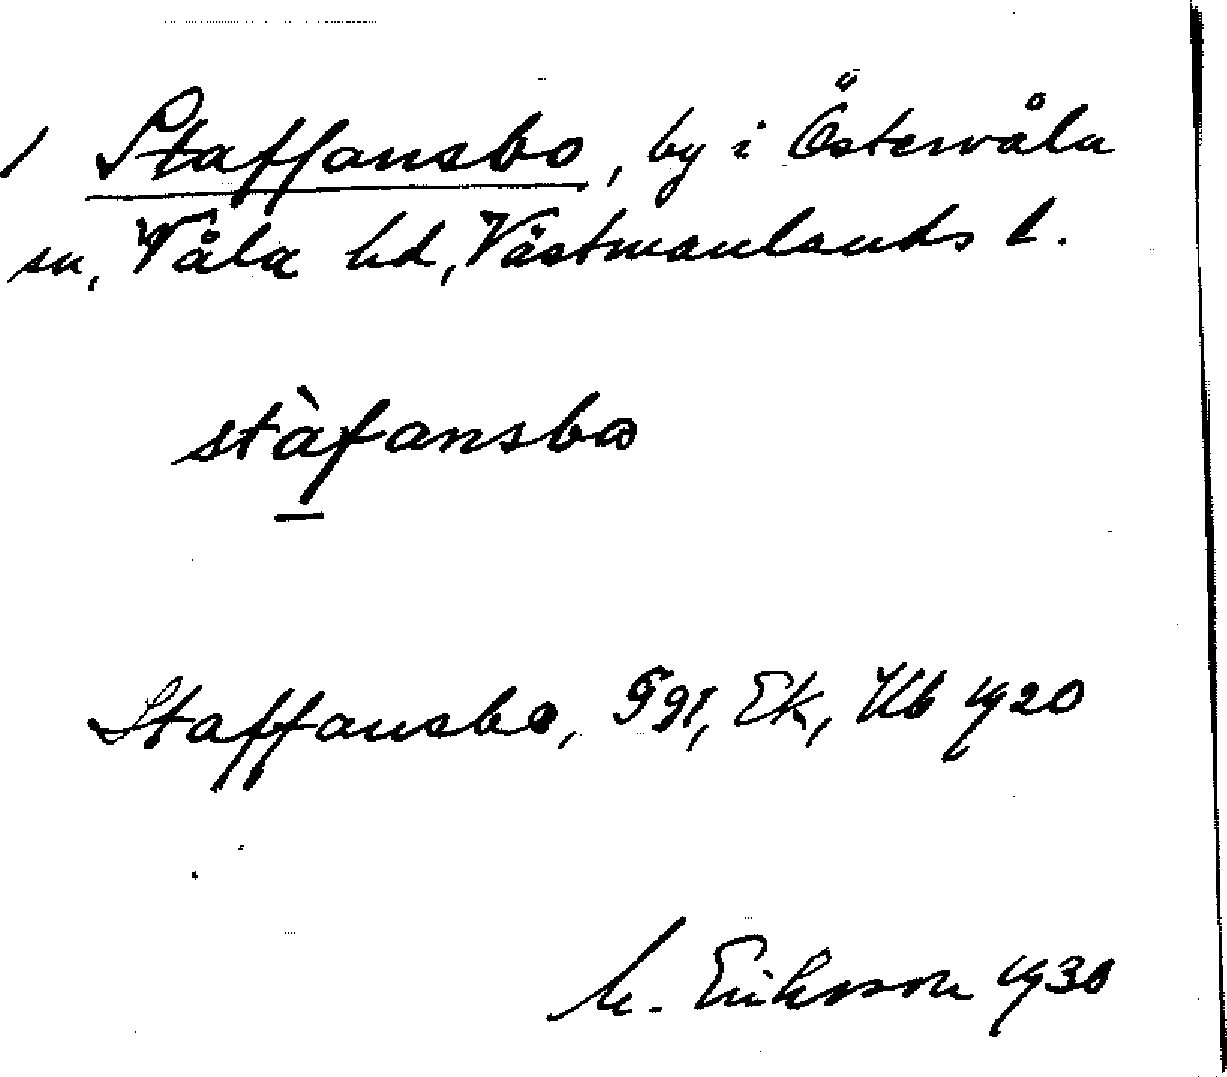 1 Staffansbo, by i Östervåla
sn, Våla hd, Västmanlands l.
stàfansbo
Staffansbo, Fgl, Ek, Kb 1920
M. Eriksson 1930